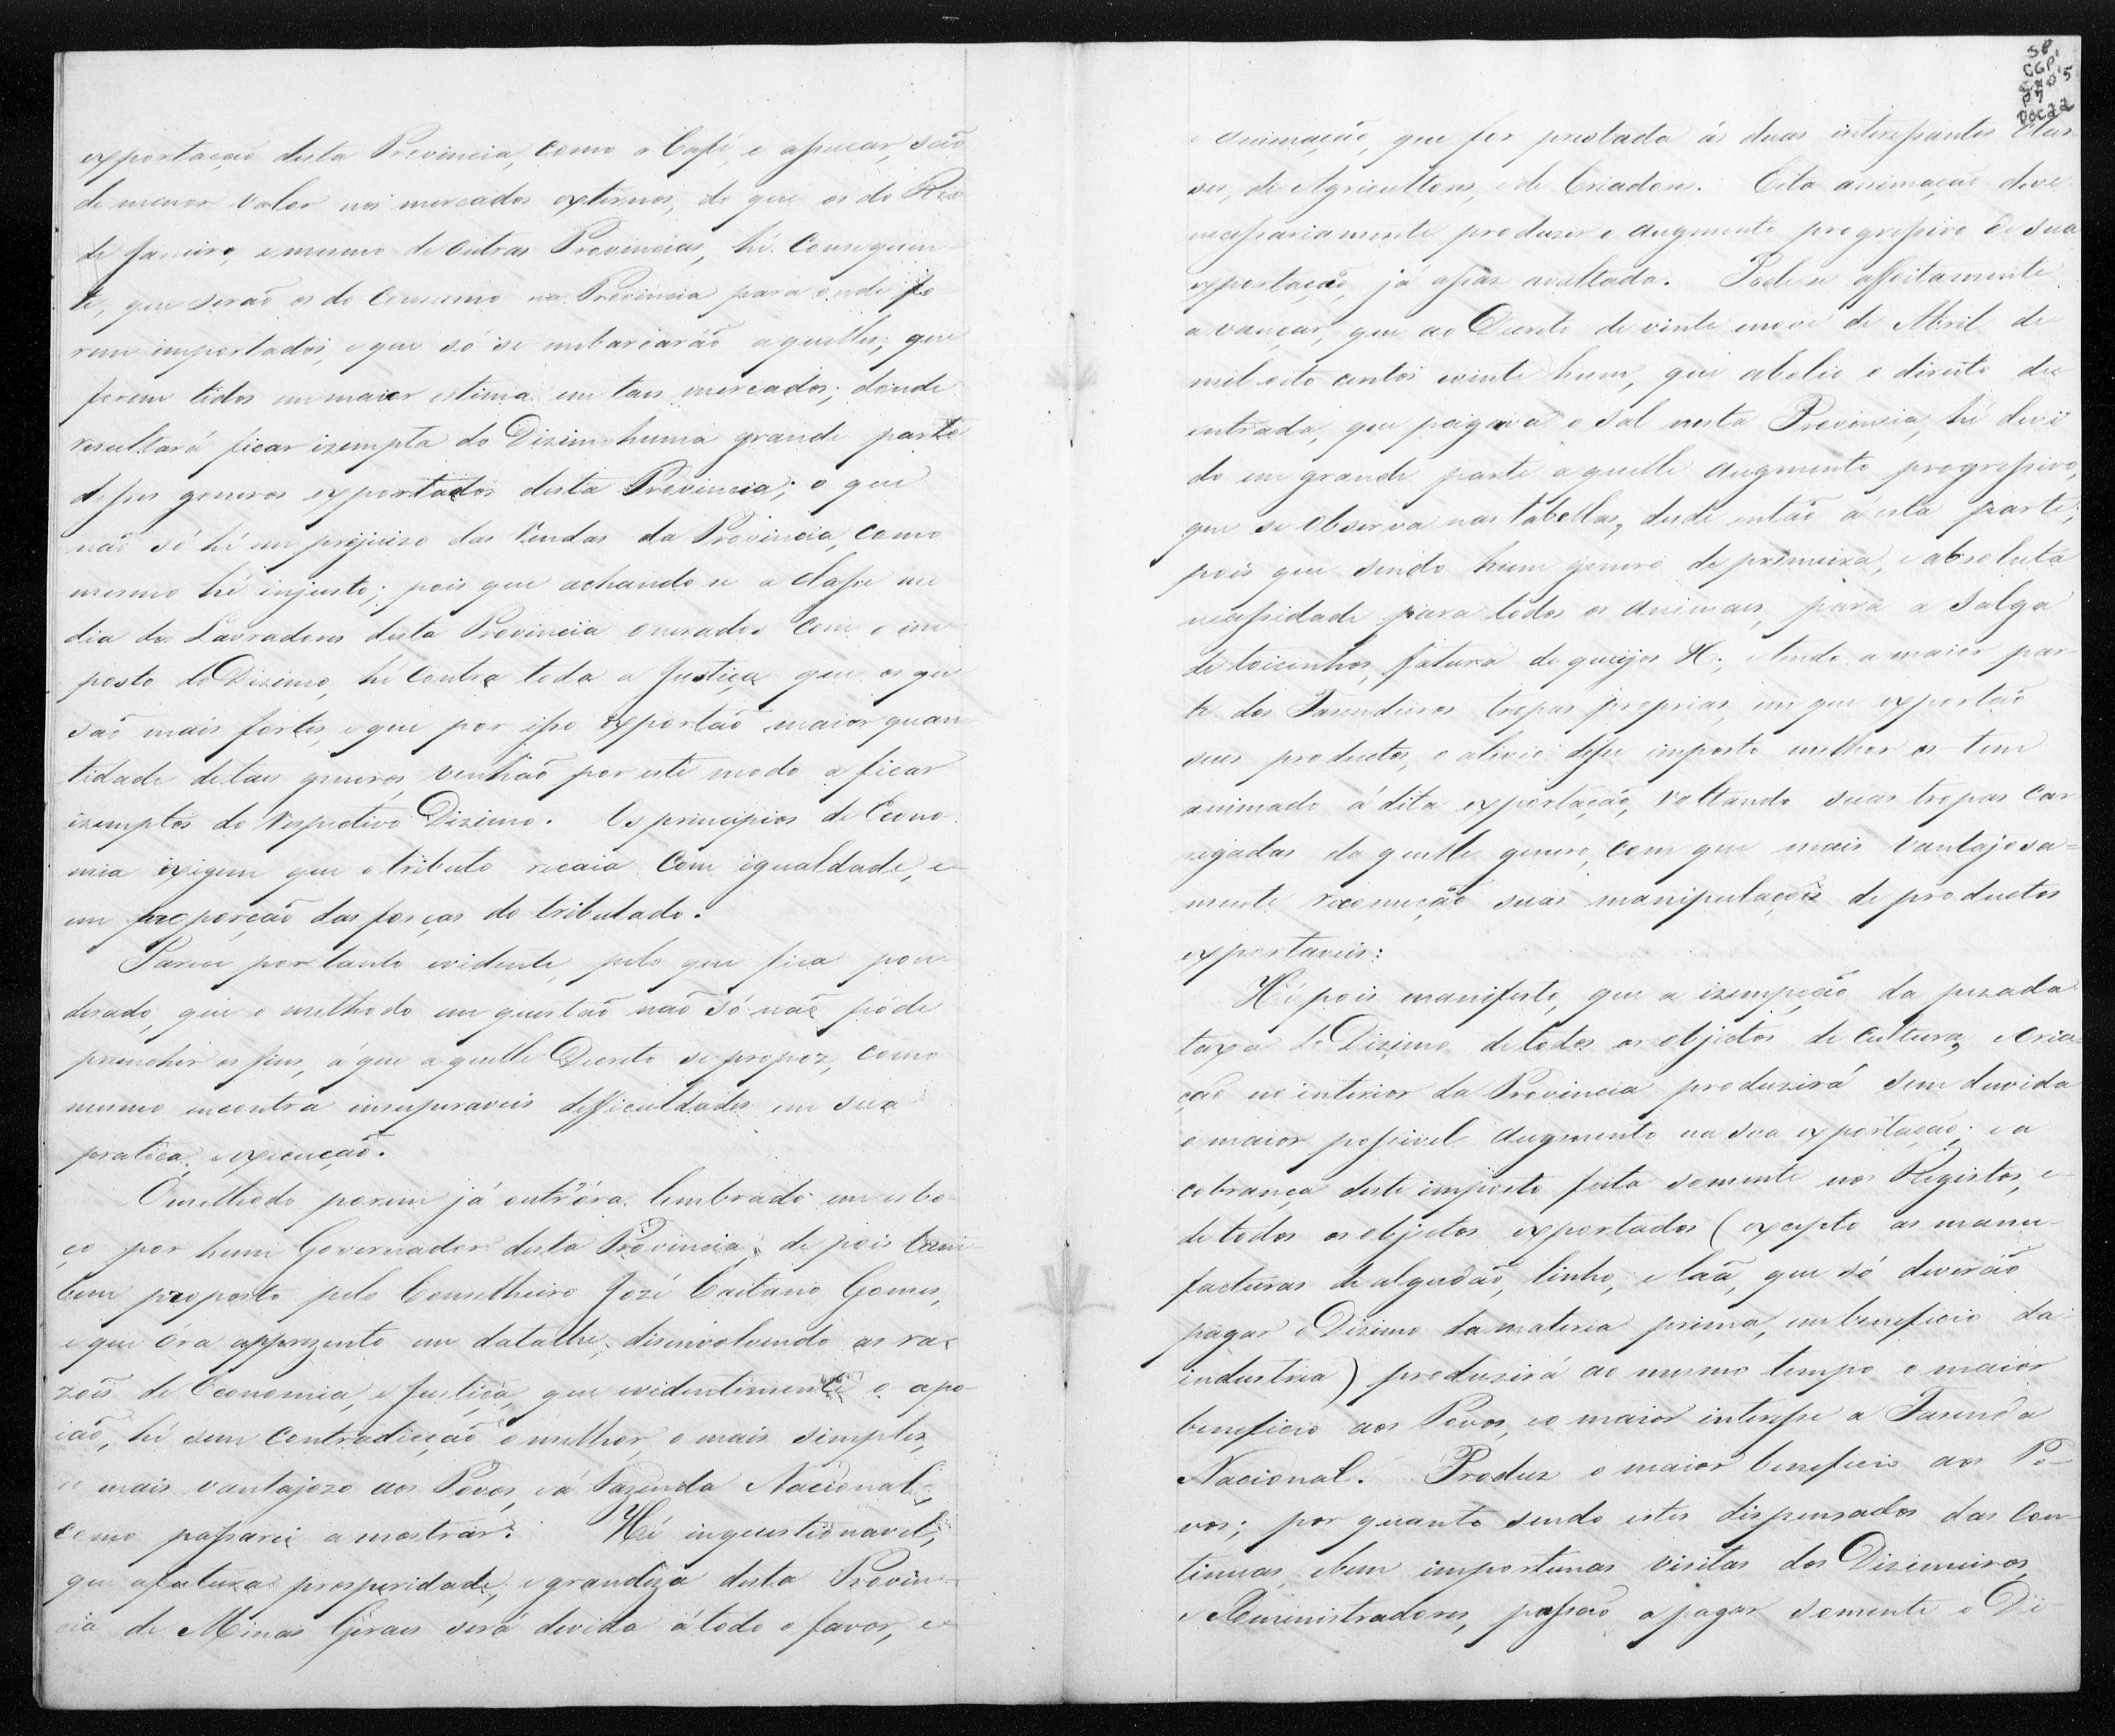 exportação desta Provincia, como o Café, e assucar, são
de menor valor nos mercados externos, do que os do Rio
de Janeiro, e mesmo de outras Provincias, hé consequen-
te, que serão os do consumo na Provincia para onde fo-
rem importados, e que só se embarcarão aquelles, que
forem tidos em maior estima em taes mercados; donde
resultará ficar izempta do Dizimo huma grande parte
desses generos exportados desta Provincia; o que
não só hé em prejuizo das Rendas da Provincia, como
mesmo hé injusto; pois que achando se a classe me
dia dos Lavradores desta Provincia onerados com o im-
posto do Dizimo, hé contra toda a Justiça que os que
são mais fortes, e que por isso exportão maior quan
tidade de taes generos, venhão por este modo a ficar
izemptos do respectivo Dizimo. Os principios de Econo-
mia exigem que o tributo recaia com igualdade, e
em proporção das forças do tributado.
Parece por tanto evidente, pelo que fica pon-
derado, que o methodo em questão não só não póde
preencher os fins, á que aquelle Decreto se propoz, como
mesmo encontra insuperaveis difficuldades em sua
pratica, e execução.
O methodo porem já outr'óra lembrado em esbo-
ço por hum Governador desta Provincia, de pois tam-
bem proposto pelo Conselheiro Jozé Caetano Gomes,
e que óra apprezento em datalhe, disinvolvendo as ra-
zoẽs de Economia, e Justiça, que evidentemente o apo-
ião, hé sem contradicção o melhor, o mais simples,
o mais vantajozo aos Povos, e á Fazenda Nacional,
como passarei a mostrar. Hé inquestionavel,
que a futura prosperidade, e grandeza desta Provin-
cia de Minas Geraes será devida á todo o favor, e
SP,
CGP,
P7
Doc 22
e animação, que for prestada ás duas interessantes clas-
ses, de Agricultores, e de Criadores. Esta animação deve
necessariamente produzir o augmento progressivo de sua
exportação, já assaz avultada. Pode se affoitamente
avançar, que ao Decreto de vinte e nove de Abril de
mil oito centos e vinte hum, que abolio o direito de
entrada, que pagava o Sal nesta Provincia, hé devi
do em grande parte aquelle augmento progressivo,
que se observa nas tabellas, desde então á esta parte;
pois que sendo hum genero de primeira, e absoluta
necessidade para todos os animaes, para a salga
de toicinhos, fatura de queijos &; e tendo a maior par-
te dos Fazendeiros tropas proprias, em que exportão
seus productos, o alivio desse imposto melhor os tem
animado á dita exportação, voltando suas tropas car
regadas daquelle genero, com que mais vantajosa=
mente suas manipulaçoẽs de productos
exportaveis:
Hé pois manifesto, que a izempção da pezada
taxa do Dizimo de todos os objectos de cultura, e cria-
ção no interior da Provincia produzirá sem duvida
o maior possivel augmento na sua exportação; e a
cobrança deste imposto feita somente nos Registos, e
de todos os objectos exportados (excepto as manu-
facturas de algodão, linho, e laã, que só deverão
pagar o Dizimo da materia prima, em beneficio da
industria) produzirá ao mesmo tempo o maior
beneficio aos Povos, e o maior interesse a Fazenda
Nacional. Produz o maior beneficio aos Po-
vos; por quanto sendo estes dispensados das con-
tinuas, e bem importunas visitas dos Dizimeiros,
e Administradores, passão a pagar somente o Di-